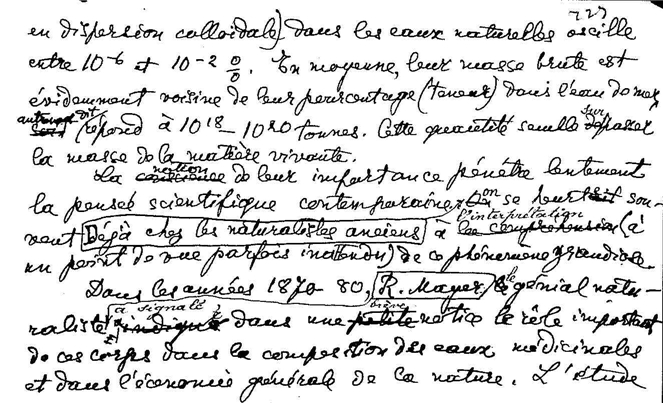 727
en dispersion colloïdale) dans les eaux naturelles oscille
entre 10-6 et 10-2 %. En moyenne, leur masse brute est
évidemment voisine de leur pourcentage (teneur) dans l'eau de mer
répond à 10 18 – 10 20 tonnes. Cette quantité semble surpasser
la masse de la matière vivante.
La notion de leur importance pénètre lentement
la pensée scientifique contemporaine. on se heurtait sou-
vent Déjà chez les naturalistes anciens à l'interprétation (à
un point de vue parfois inattendu) de ce phénomène grandiose.
Dans les années 1870-80, R. Mayer, le génial natu-
raliste, a signalé dans une brève notice le rôle important
de ces corps dans la composition des eaux médicinales
et dans l'économie générale de la nature. L'étude